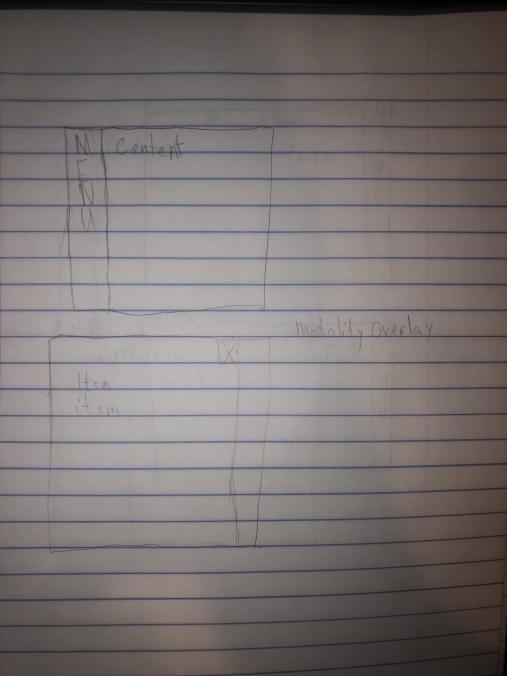 MENU
Content
Modality Overlay
X
Item
item